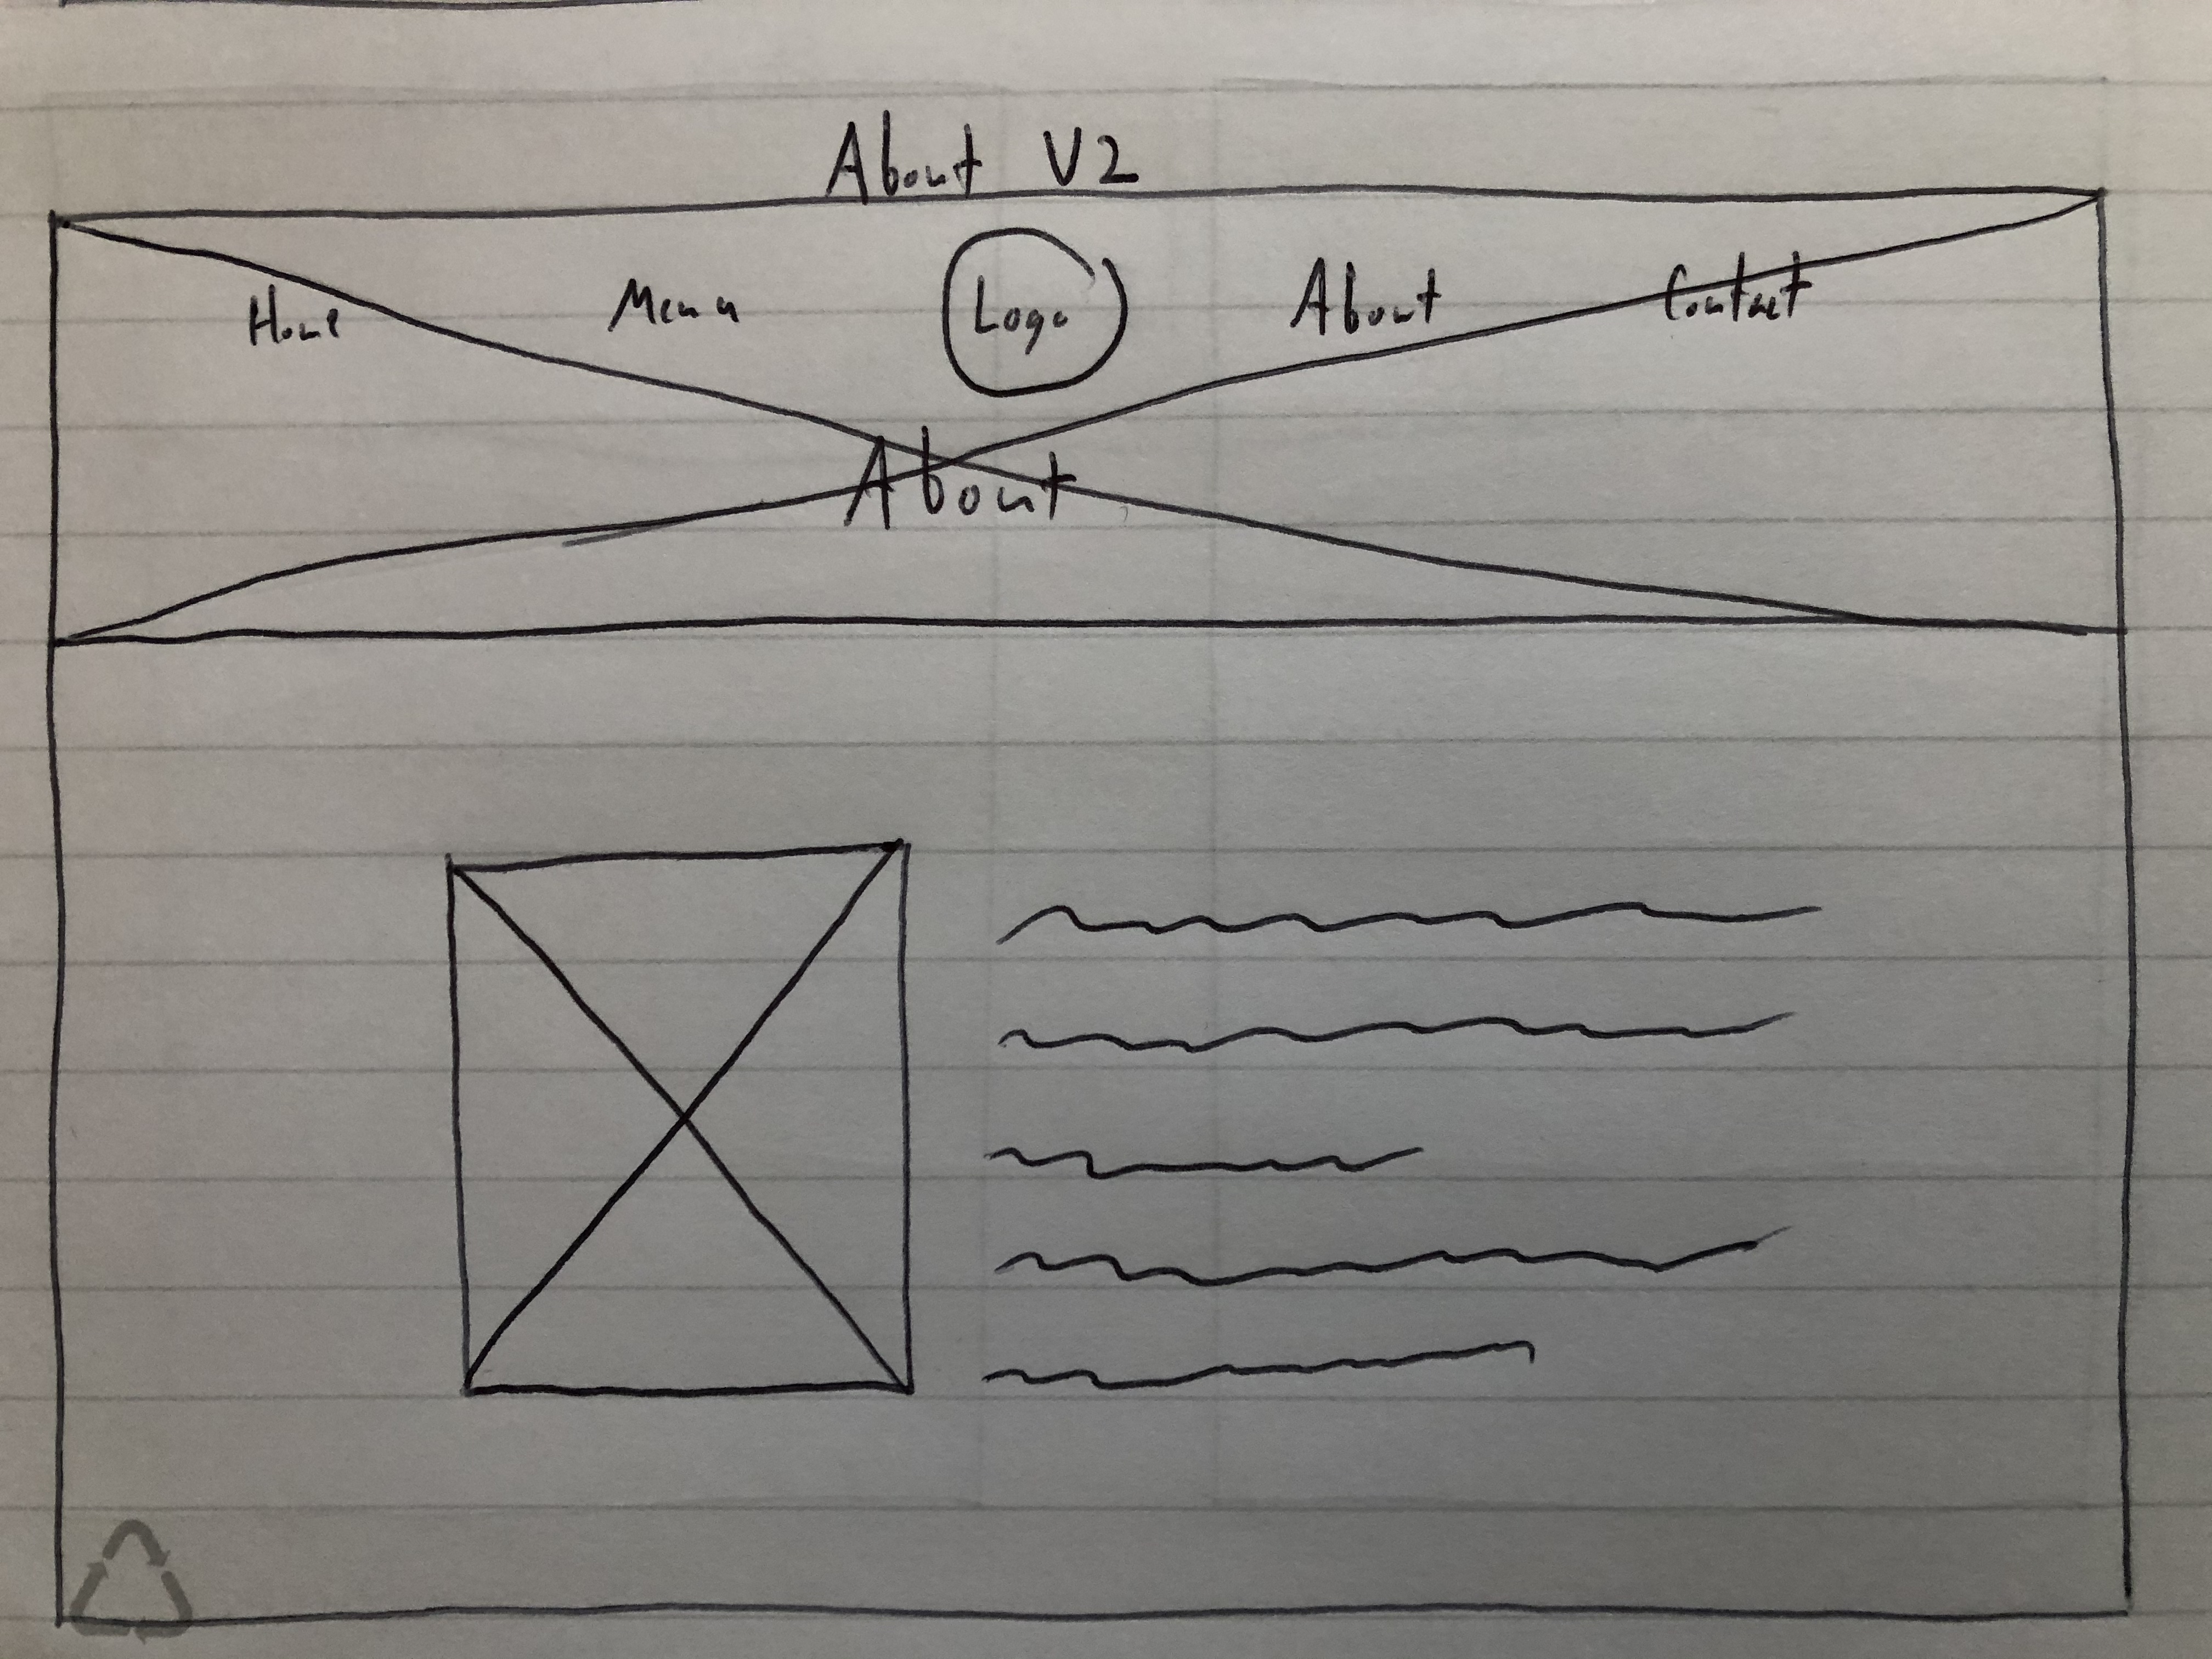 About V2
Home Menu Logo About Contact
About